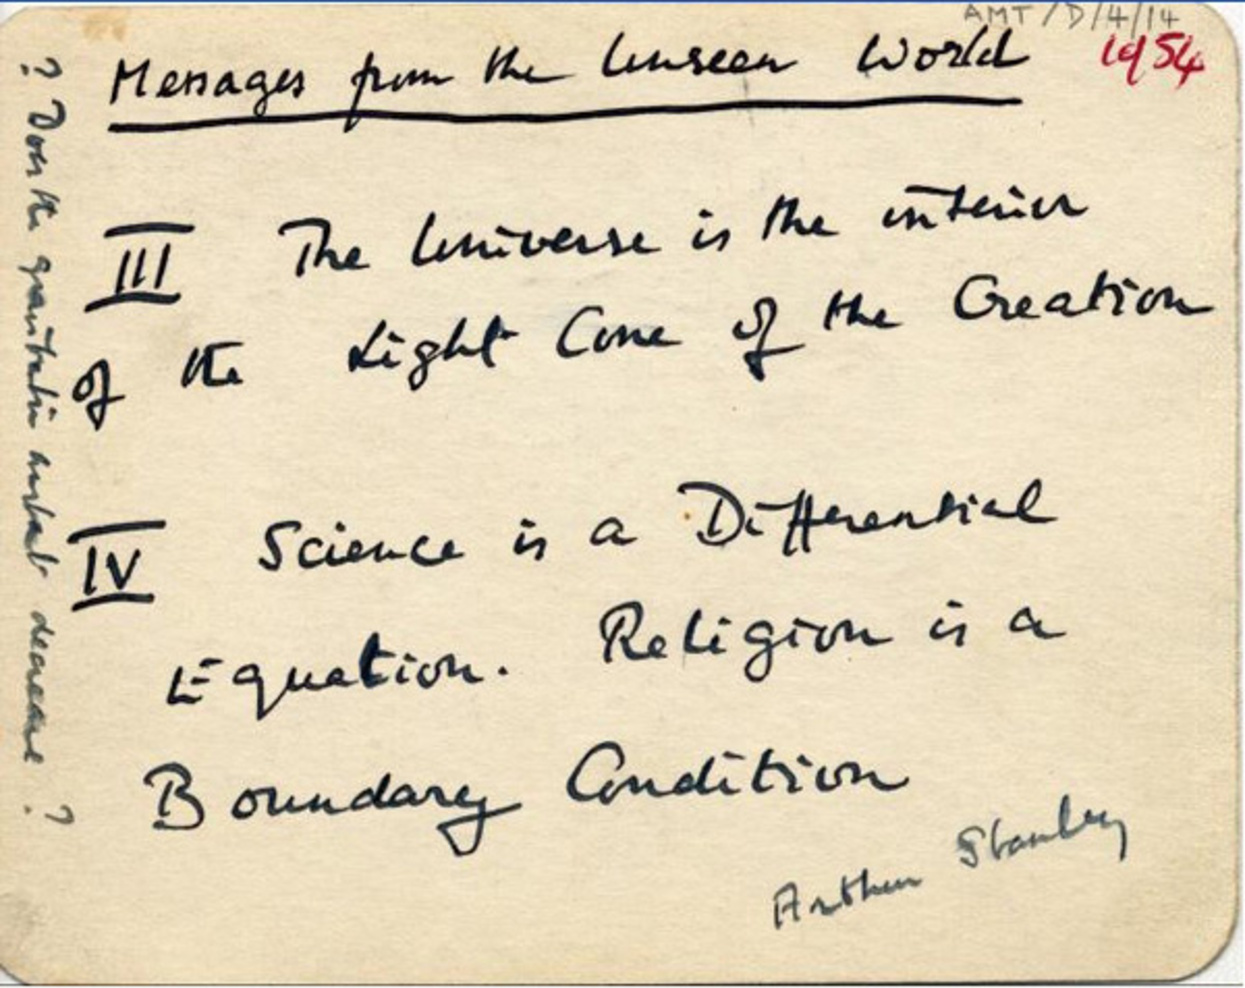 AMT/D/4/14
1954
Messages from the Unseen World
III The Universe is the interior
of the Light Cone of the Creation
IV Science is a Differential
Equation. Religion is a
Boundary Condition
Arthur Stanley
? Does the gravitation constant decrease ?